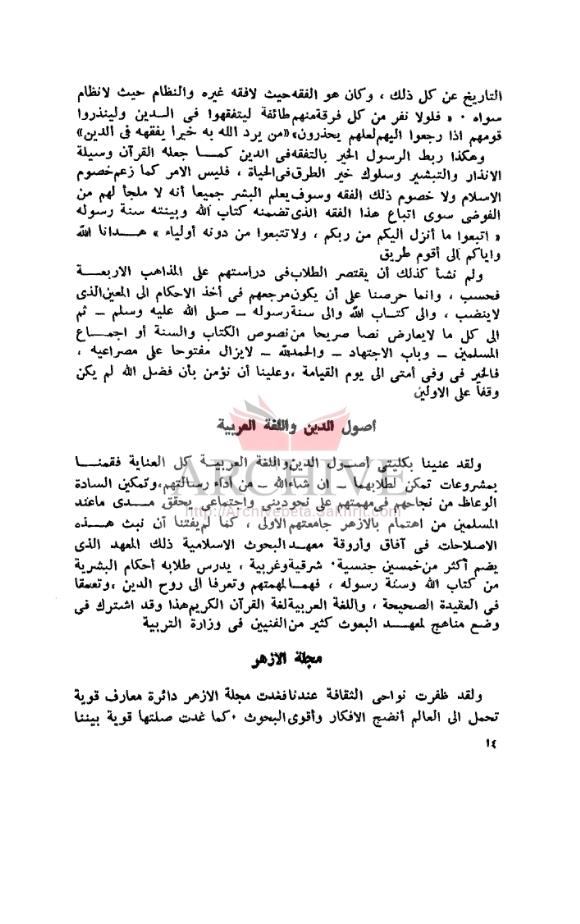 التاريخ عن كل ذلك ، وكان هو الفقه حيث لافقه غيره والنظام حيث لانظام
سواه ٠ « فلولا نفر من كل فرقة منهم طائفة ليتفقهوا فى الـدين ولينذروا
قومهم اذا رجعوا اليهم لعلهم يحذرون» «من يرد الله به خيرا يفقهه فى الدين»
وهكذا ربط الرسول الخير بالتفقه فى الدين كمــا جعله القرآن وسيلة
الانذار والتبشير وسلوك خير الطرق فى الحياة ، فليس الامر كما زعم خصوم
الاسلام ولا خصوم ذلك الفقه وسوف يعلم البشر جميعا أنه لا ملجأ لهم من
الفوضى سوى اتباع هذا الفقه الذى تضمنه كتاب الله وبينته سنة رسوله
« اتبعوا ما أنزل اليكم من ربكم ، ولا تتبعوا من دونه أولياء » هــدانا الله
واياكم إلى أقوم طريق
ولم نشأ كذلك أن يقتصر الطلاب فى دراستهم على المذاهب الاربعــة
فحسب ، وانما حرصنا على أن يكون مرجعهم فى أخذ الاحكام الى المعين الذى
لا ينضب ، والى كتــاب الله والى سنة رسوله ـ صلى الله عليه وسلم ـ ثم
الى كل ما لا يعارض نصا صريحا من نصوص الكتاب والسنة أو اجمــاع
المسلمين ـ وباب الاجتهاد ـ والحمد لله ـ لايزال مفتوحا على مصراعيه ،
فالخير فى وفى أمتى الى يوم القيامة ، وعلينا أن نؤمن بأن فضل الله لم يكن
وقفا على الاولين
اصول الدين واللغة العربية
ولقد عنينا بكليتى أصــول الدين واللغة العربيــة كل العناية فقمنــا
بمشروعات تمكن لطلابهمــا ـ ان شاء الله ـ من أداء رسالتهم، وتمكين السادة
الوعاظ من نجاحهم فى مهمتهم على نحو دينى واجتماعى يحقق مــدى ماعند
ARCHIVE
http://Archivebeta.Sakhrit.com
المسلمين من اهتمام بالأزهر جامعتهم الاولى ، كما لم يفتنا أن نبث هــذه
الاصلاحات فى آفاق وأروقة معهــد البحوث الاسلامية ذلك المعهد الذى
يضم أكثر من خمسين جنسية ٠ شرقية وغربية ، يدرس طلابه أحكام البشرية
من كتاب الله وسنة رسوله ، فهمــا لمهمتهم وتعرفا الى روح الدين ، وتعمقا
فى العقيدة الصحيحة ، واللغة العربية لغة القرآن الكريم هذا وقد اشترك فى
وضع مناهج لمعهــد البعوث كثير من الفنيين فى وزارة التربية
مجلة الازهر
ولقد ظفرت نواحى الثقافة عندنا فغدت مجلة الازهر دائرة معارف قوية
تحمل الى العالم أنضج الافكار وأقوى البحوث ٠ كما غدت صلتها قوية بيننا
١٤